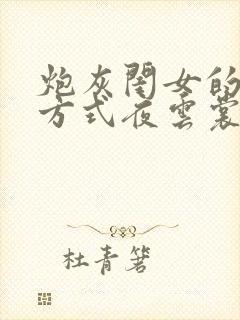 炮灰閨女的
方式夜雲裳
杜青箸